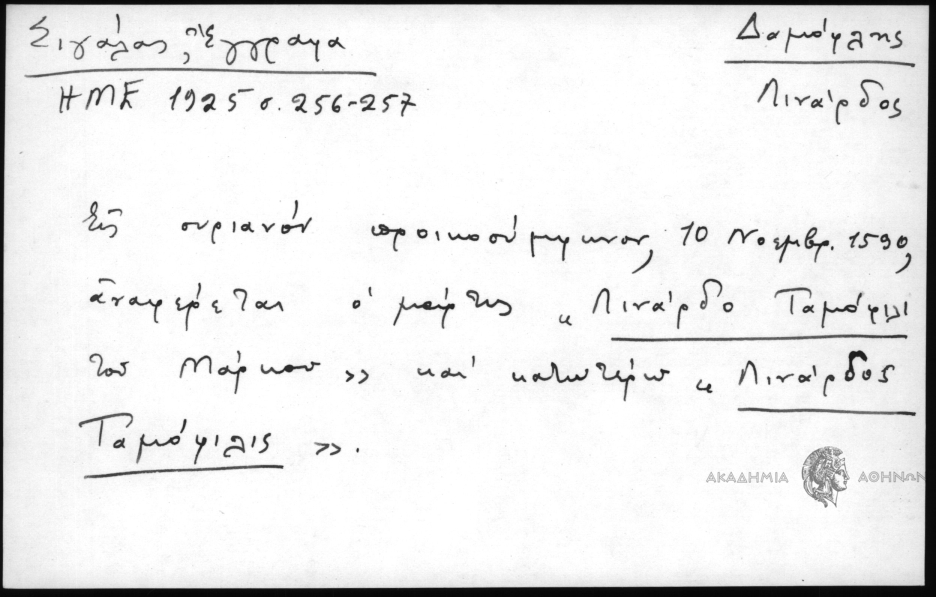 Σιγάλας, Ἔγγραφα
Δαμόφλης
ΗΜΕ 1925 σ. 256-257
Λινάρδος
Εἰς συριανόν προικοσύμφωνον, 10 Νοεμβρ. 1590,
ἀναφέρεται ὁ μάρτυς «Λινάρδο Ταμόφιλι
τοῦ Μάρκου» καί κατωτέρω «Λινάρδος
Ταμόφιλις».
ΑΚΑΔΗΜΙΑ ΑΘΗΝΩΝ